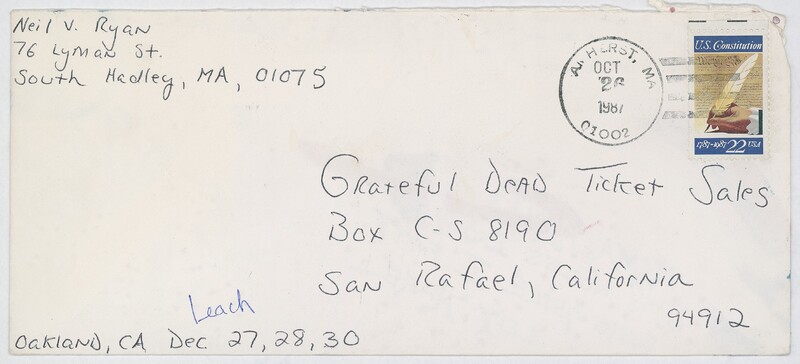 Neil V. Ryan
76 Lyman St.
South Hadley, MA, 01075
AMHERST, MA
OCT
26
1987
01002
U.S. Constitution
1787-1987 22 USA
Grateful Dead Ticket Sales
Box C-S 8190
San Rafael, California
94912
Leach
Oakland, CA Dec 27, 28, 30